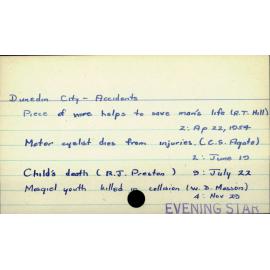 Dunedin City - Accidents
Piece of wire helps to save man's life (R.T. Hill)
2: Ap 22, 1954
Motor cyclist dies from injuries. (C.S. Agate)
2: June 19
Child's death (R.J. Preston) 9: July 22
Mosgiel youth killed in collision (W.D. Masson)
4: Nov 29
EVENING STAR